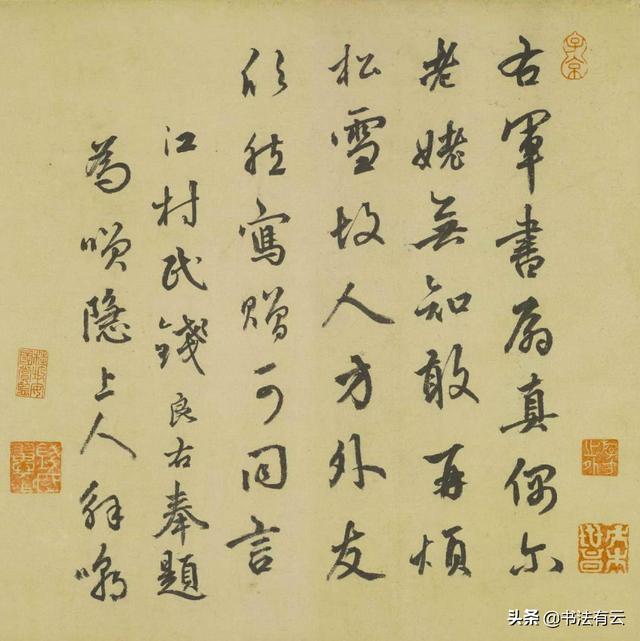 右軍書扇真偶尔
老姥無知敢再煩
松雪故人方外友
欣然寫贈可同言
江村民錢良右奉題
為唄隱上人解嘲
子京
头条 @书法有云